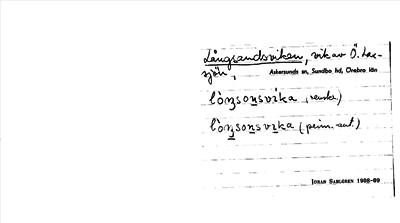 Långsandsviken, vik av Ö. Lax-
sjön,
Askersunds sn, Sundbo hd, Örebro län
lòŋsonsvika
lòŋsonsvika (prim. ant.)
JÖRAN SAHLGREN 1908-09